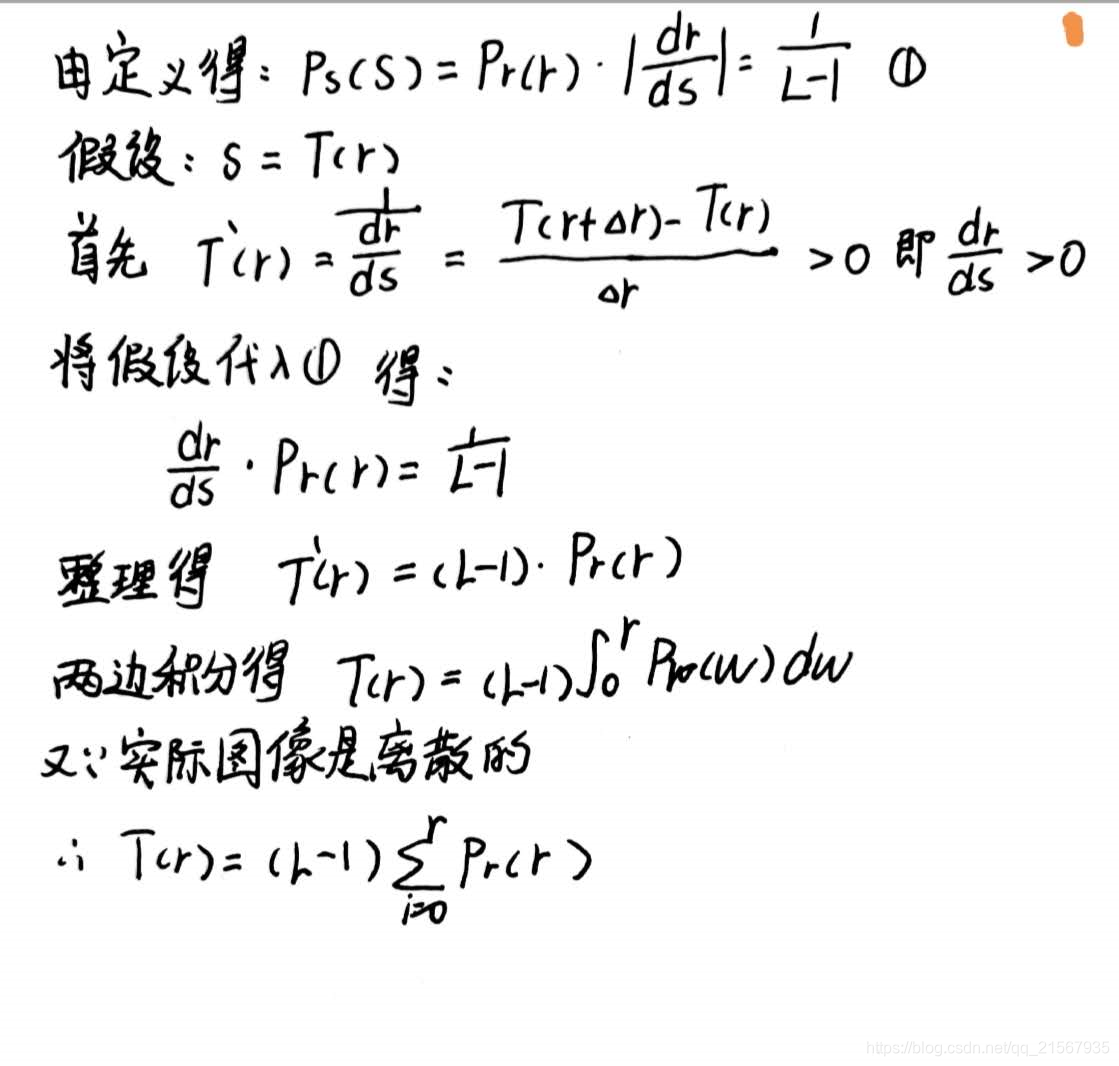 由定义得: Ps(s) = Pr(r) · |dr/ds| = 1/(L-1) ①
假设: s = T(r)
首先 T'(r) = 1/(dr/ds) = (T(r+Δr) - T(r))/Δr > 0 即 dr/ds > 0
将假设代入① 得:
dr/ds · Pr(r) = 1/(L-1)
整理得 T'(r) = (L-1) · Pr(r)
两边积分得 T(r) = (L-1)∫₀^r Pr(w) dw
又∵实际图像是离散的
∴ T(r) = (L-1) ∑_{i=0}^{r} Pr(r)
https://blog.csdn.net/qq_21567935